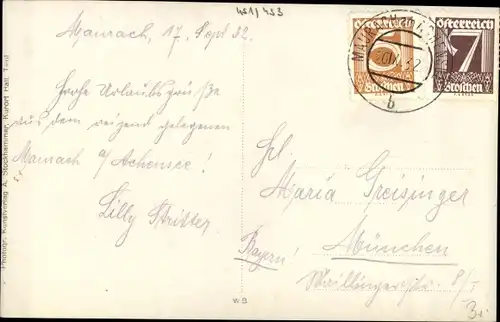 451/453
Maurach, 17. Sept 32.
Frohe Urlaubsgrüße
aus dem reizend gelegenen
Maurach a/Achensee!
Lilly Stritter
Österreich
Österreich
7
Groschen
Groschen
b
Frl.
Maria Greisinger
München
Bayern!
W B
Photogr. Kunstverlag A. Stockhammer, Kurort Hall, Tirol